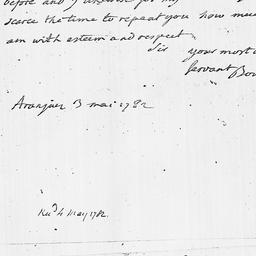 before and
scarce the time to repeat you how much
am with esteem and respect
Sir your most
Servant Bou
Aranjuez 3 mai 1782
Recd 4 May 1782.